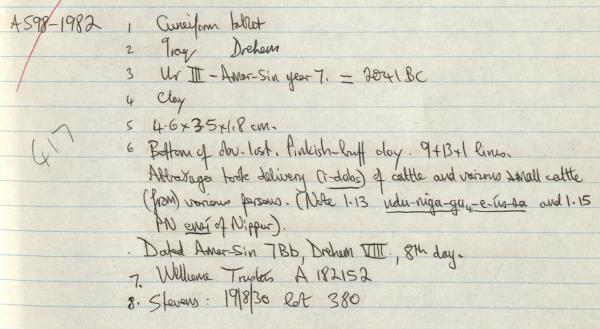 A598-1982 1 Cuneiform tablet
2 Iraq Drehem
3 Ur III - Amar-Sin year 7. = 2041 BC
4 Clay
5 4.6 x 3.5 x 1.8 cm.
417
6 Bottom of obv. lost. Pinkish-buff clay. 9+13+1 lines.
took delivery (ì-dab5) of cattle and various small cattle
(from) various persons. (Note l.13 udu-niga-gu4-e-ús-sa and l.15
PN ensí of Nippur).
. Dated Amar-Sin 7Bb, Drehem VIII, 8th day.
7. Wellcome Trustees A 182152
8. Stevens: 19/8/30 lot 380